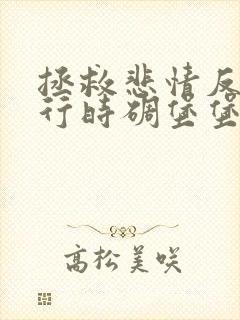 拯救悲情反
行時碉堡堡
高松美咲